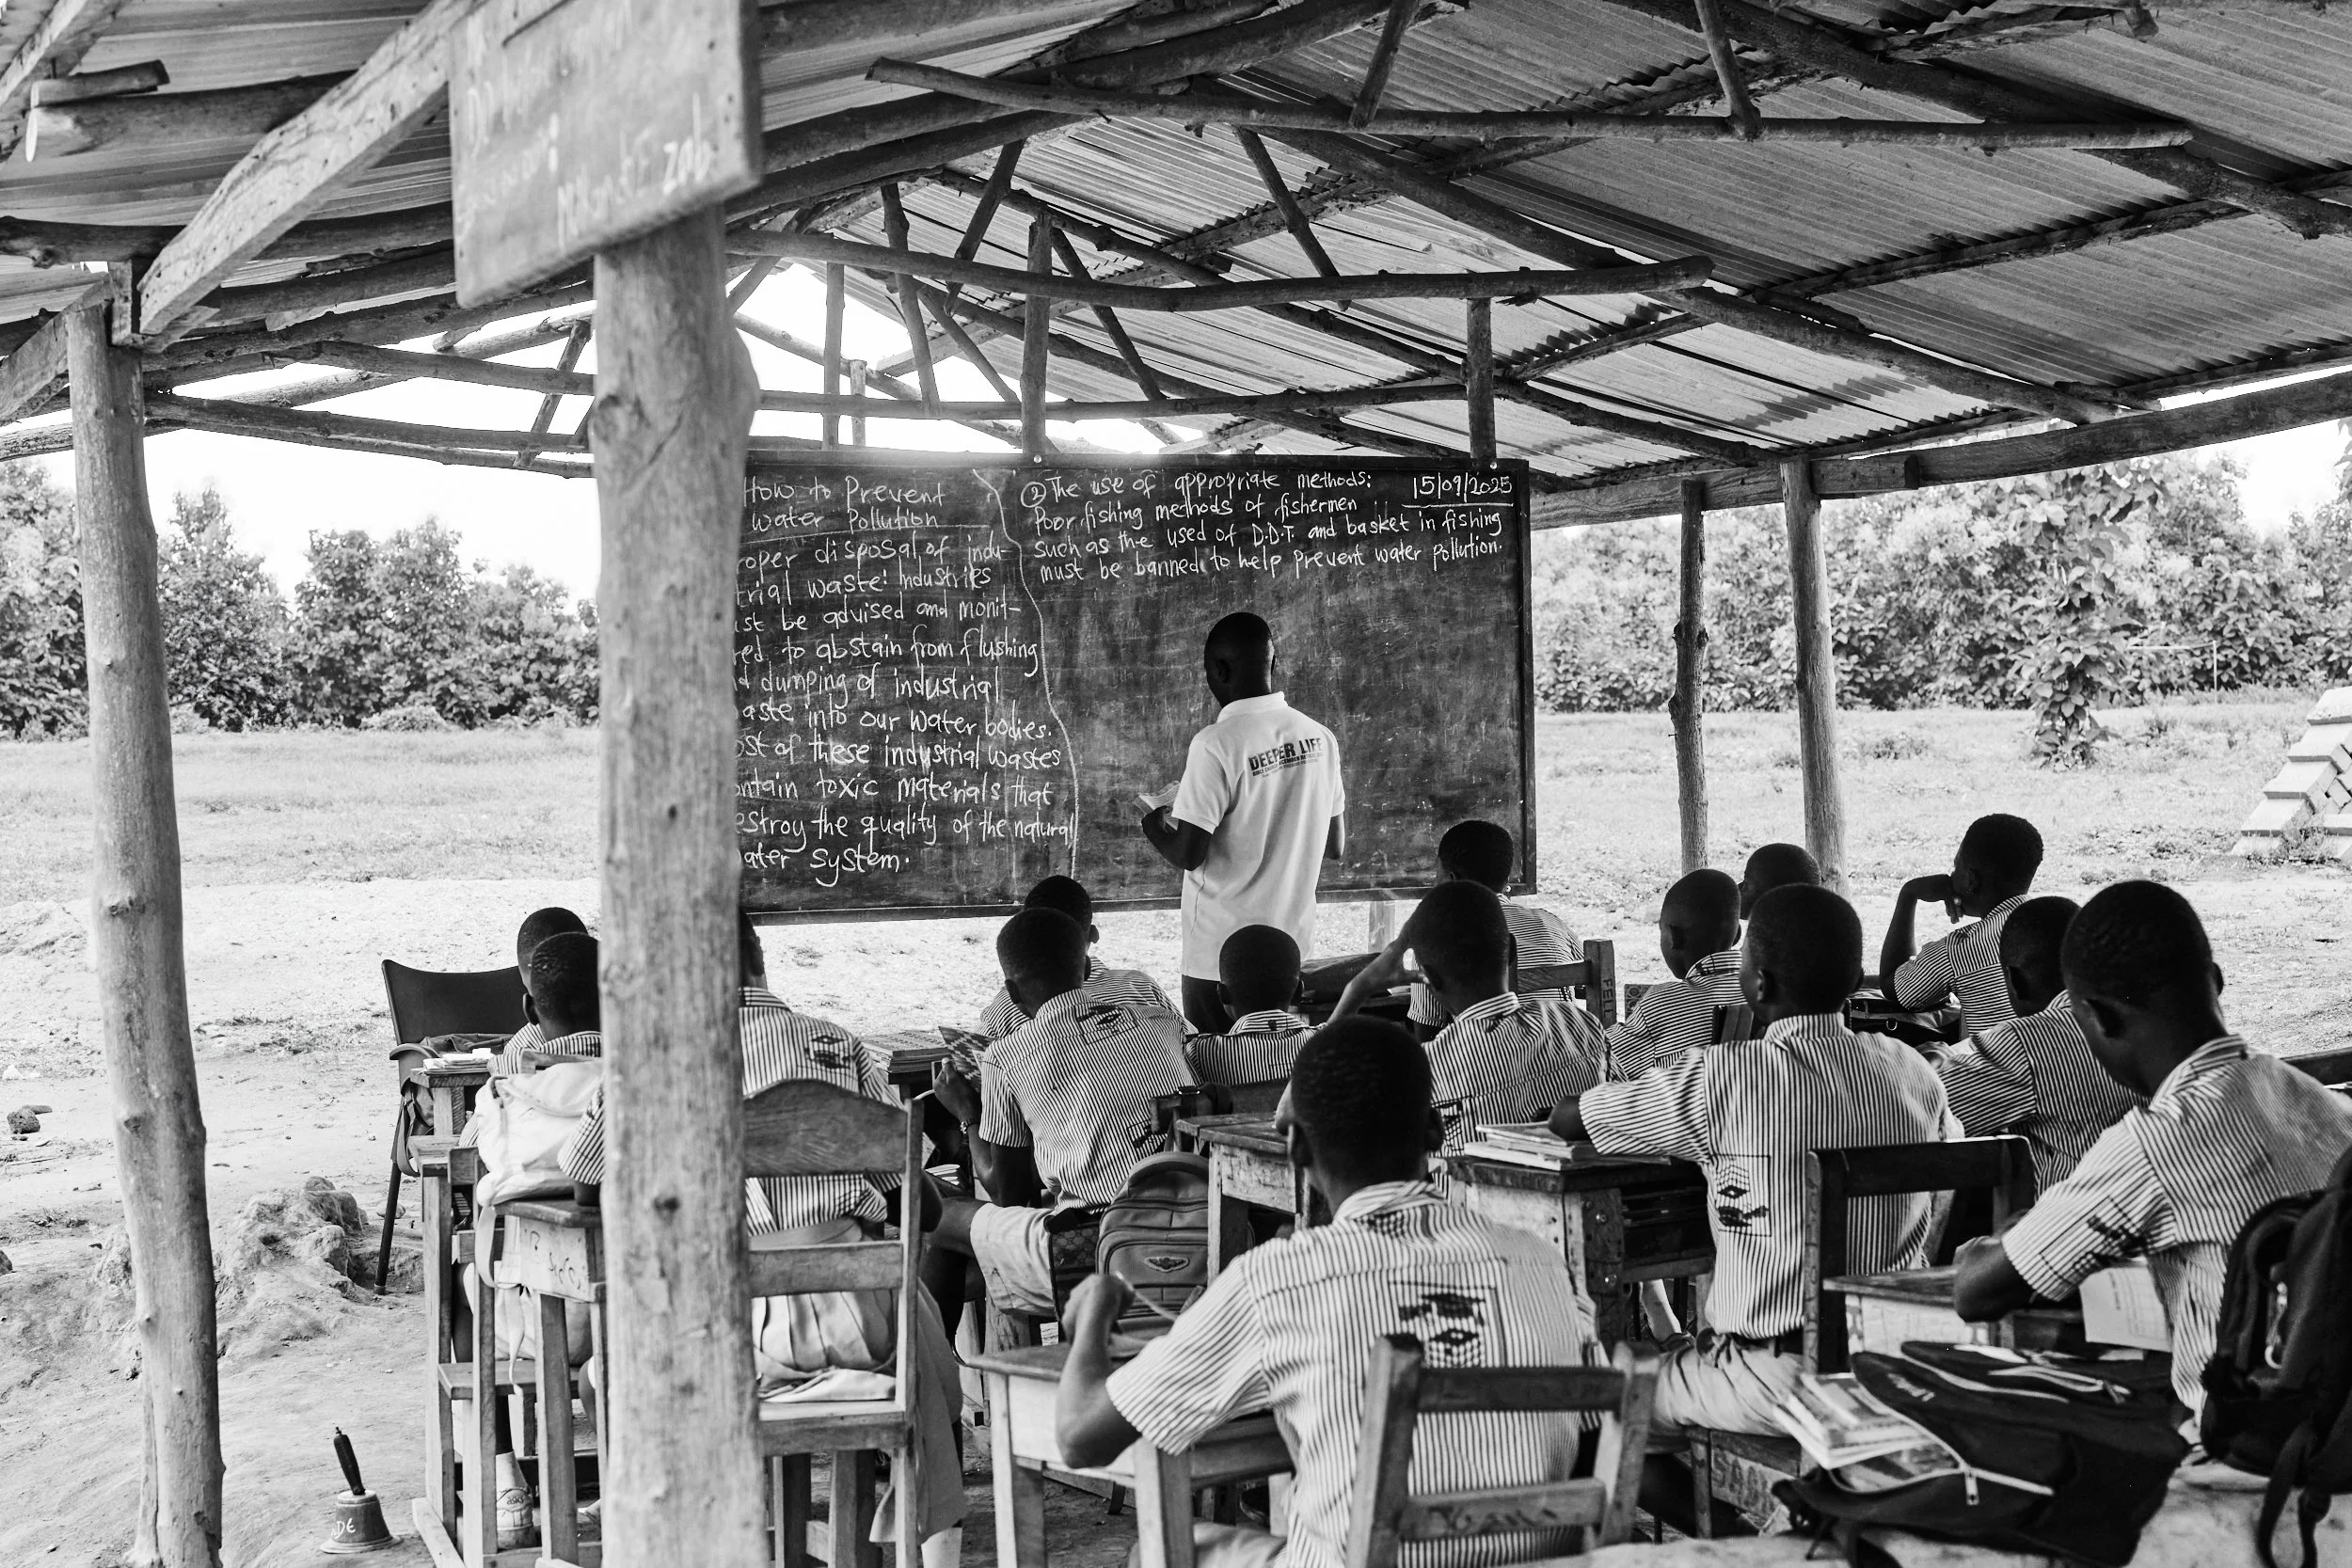 How to Prevent
Water Pollution
roper disposal of indu-
trial waste: Industries
st be advised and monit-
red to abstain from flushing
d dumping of industrial
aste into our water bodies.
ost of these industrial wastes
ontain toxic materials that
estroy the quality of the natural
ater system.
② The use of appropriate methods:
15/09/2025
Poor fishing methods of fishermen
such as the used of D.D.T. and basket in fishing
must be banned to help prevent water pollution.
DEEPER LIFE